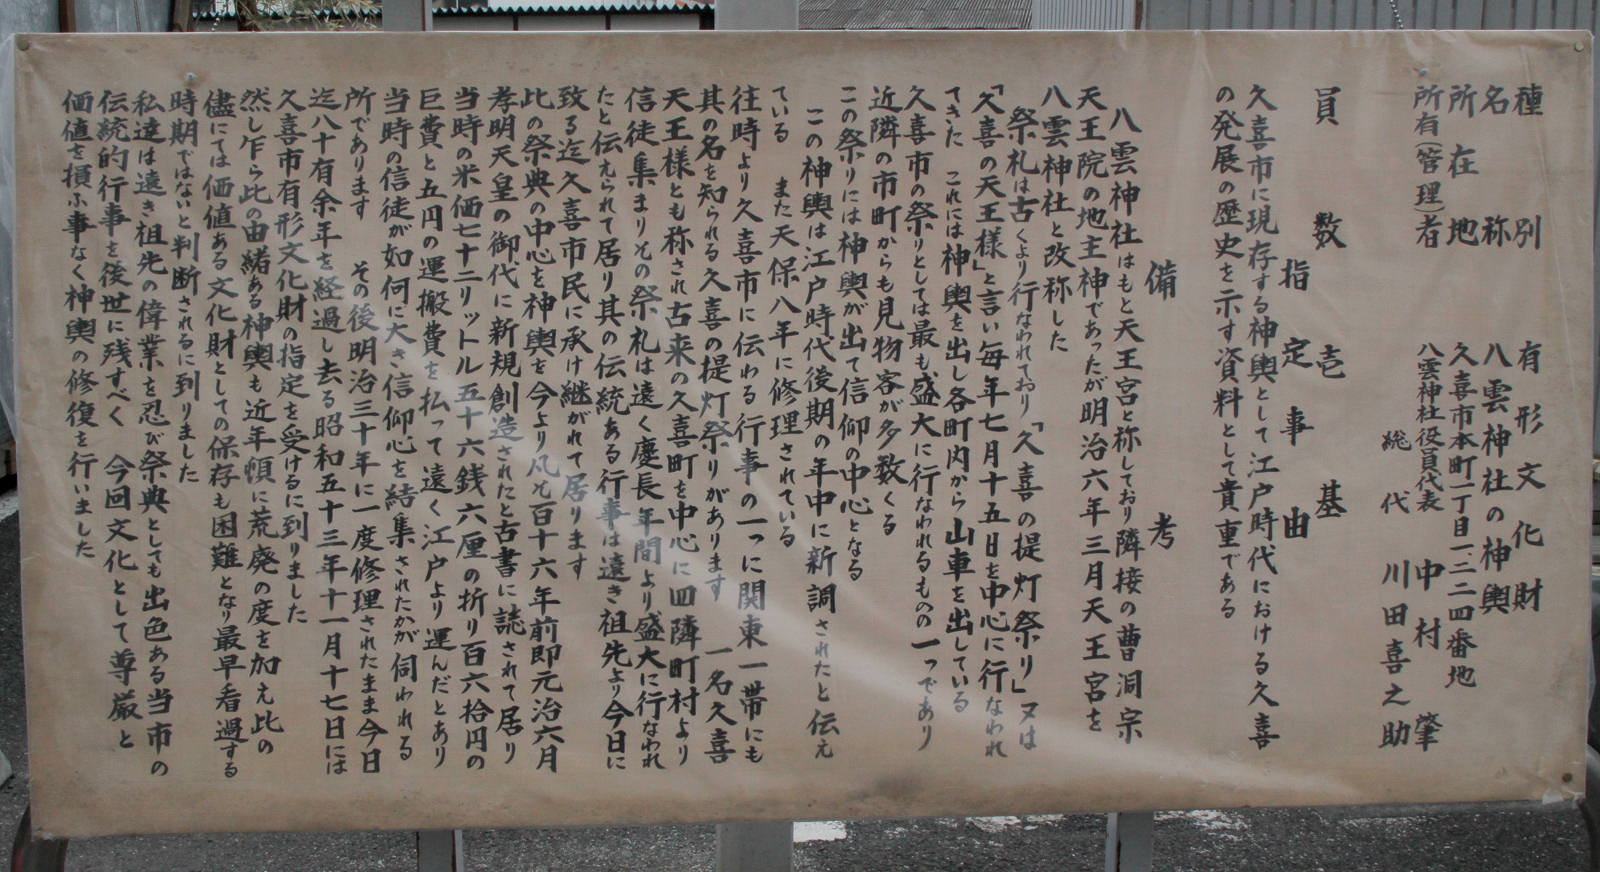 種別 有形文化財
名称 八雲神社の神輿
所在地 久喜市本町一丁目一二二四番地
所有(管理)者 八雲神社役員代表 中村肇
総代 川田喜之助
員数 壱基
指定事由
久喜市に現存する神輿として江戸時代における久喜
の発展の歴史を示す資料として貴重である
備考
八雲神社はもと天王宮と称しており隣接の曹洞宗
天王院の地主神であったが明治六年三月天王宮を
八雲神社と改称した
祭礼は古くより行なわれており「久喜の提灯祭り」又は
「久喜の天王様」と言い毎年七月十五日を中心に行なわれ
てきた これには神輿を出し各町内から山車を出している
久喜市の祭りとしては最も盛大に行なわれるものの一つであり
近隣の市町からも見物客が多数くる
この祭りには神輿が出て信仰の中心となる
この神輿は江戸時代後期の年中に新調されたと伝え
ている また天保八年に修理されている
往時より久喜市に伝わる行事の一つに関東一帯にも
其の名を知られる久喜の提灯祭りがあります 一名久喜
天王様とも称され古来の久喜町を中心に四隣町村より
信徒集まりその祭礼は遠く慶長年間より盛大に行なわれ
たと伝えられて居り其の伝統ある行事は遠き祖先より今日に
致る迄久喜市民に承け継がれて居ります
此の祭典の中心を神輿を今より凡そ百十六年前即元治六月
孝明天皇の御代に新規創造されたと古書に誌されて居り
当時の米価七十二リットル五十六銭六厘の折り百六拾円の
巨費と五円の運搬費を払って遠く江戸より運んだとあり
当時の信徒が如何に大き信仰心を結集されたかが伺われる
所であります その後明治三十年に一度修理されたまま今日
迄八十有余年を経過し去る昭和五十三年十一月十七日には
久喜市有形文化財の指定を受けるに到りました
然し乍ら此の由緒ある神輿も近年頓に荒廃の度を加え此の
儘にては価値ある文化財としての保存も困難となり最早看過する
時期ではないと判断されるに到りました
私達は遠き祖先の偉業を忍び祭典としても出色ある当市の
伝統的行事を後世に残すべく 今回文化として尊厳と
価値を損ふ事なく神輿の修復を行いました